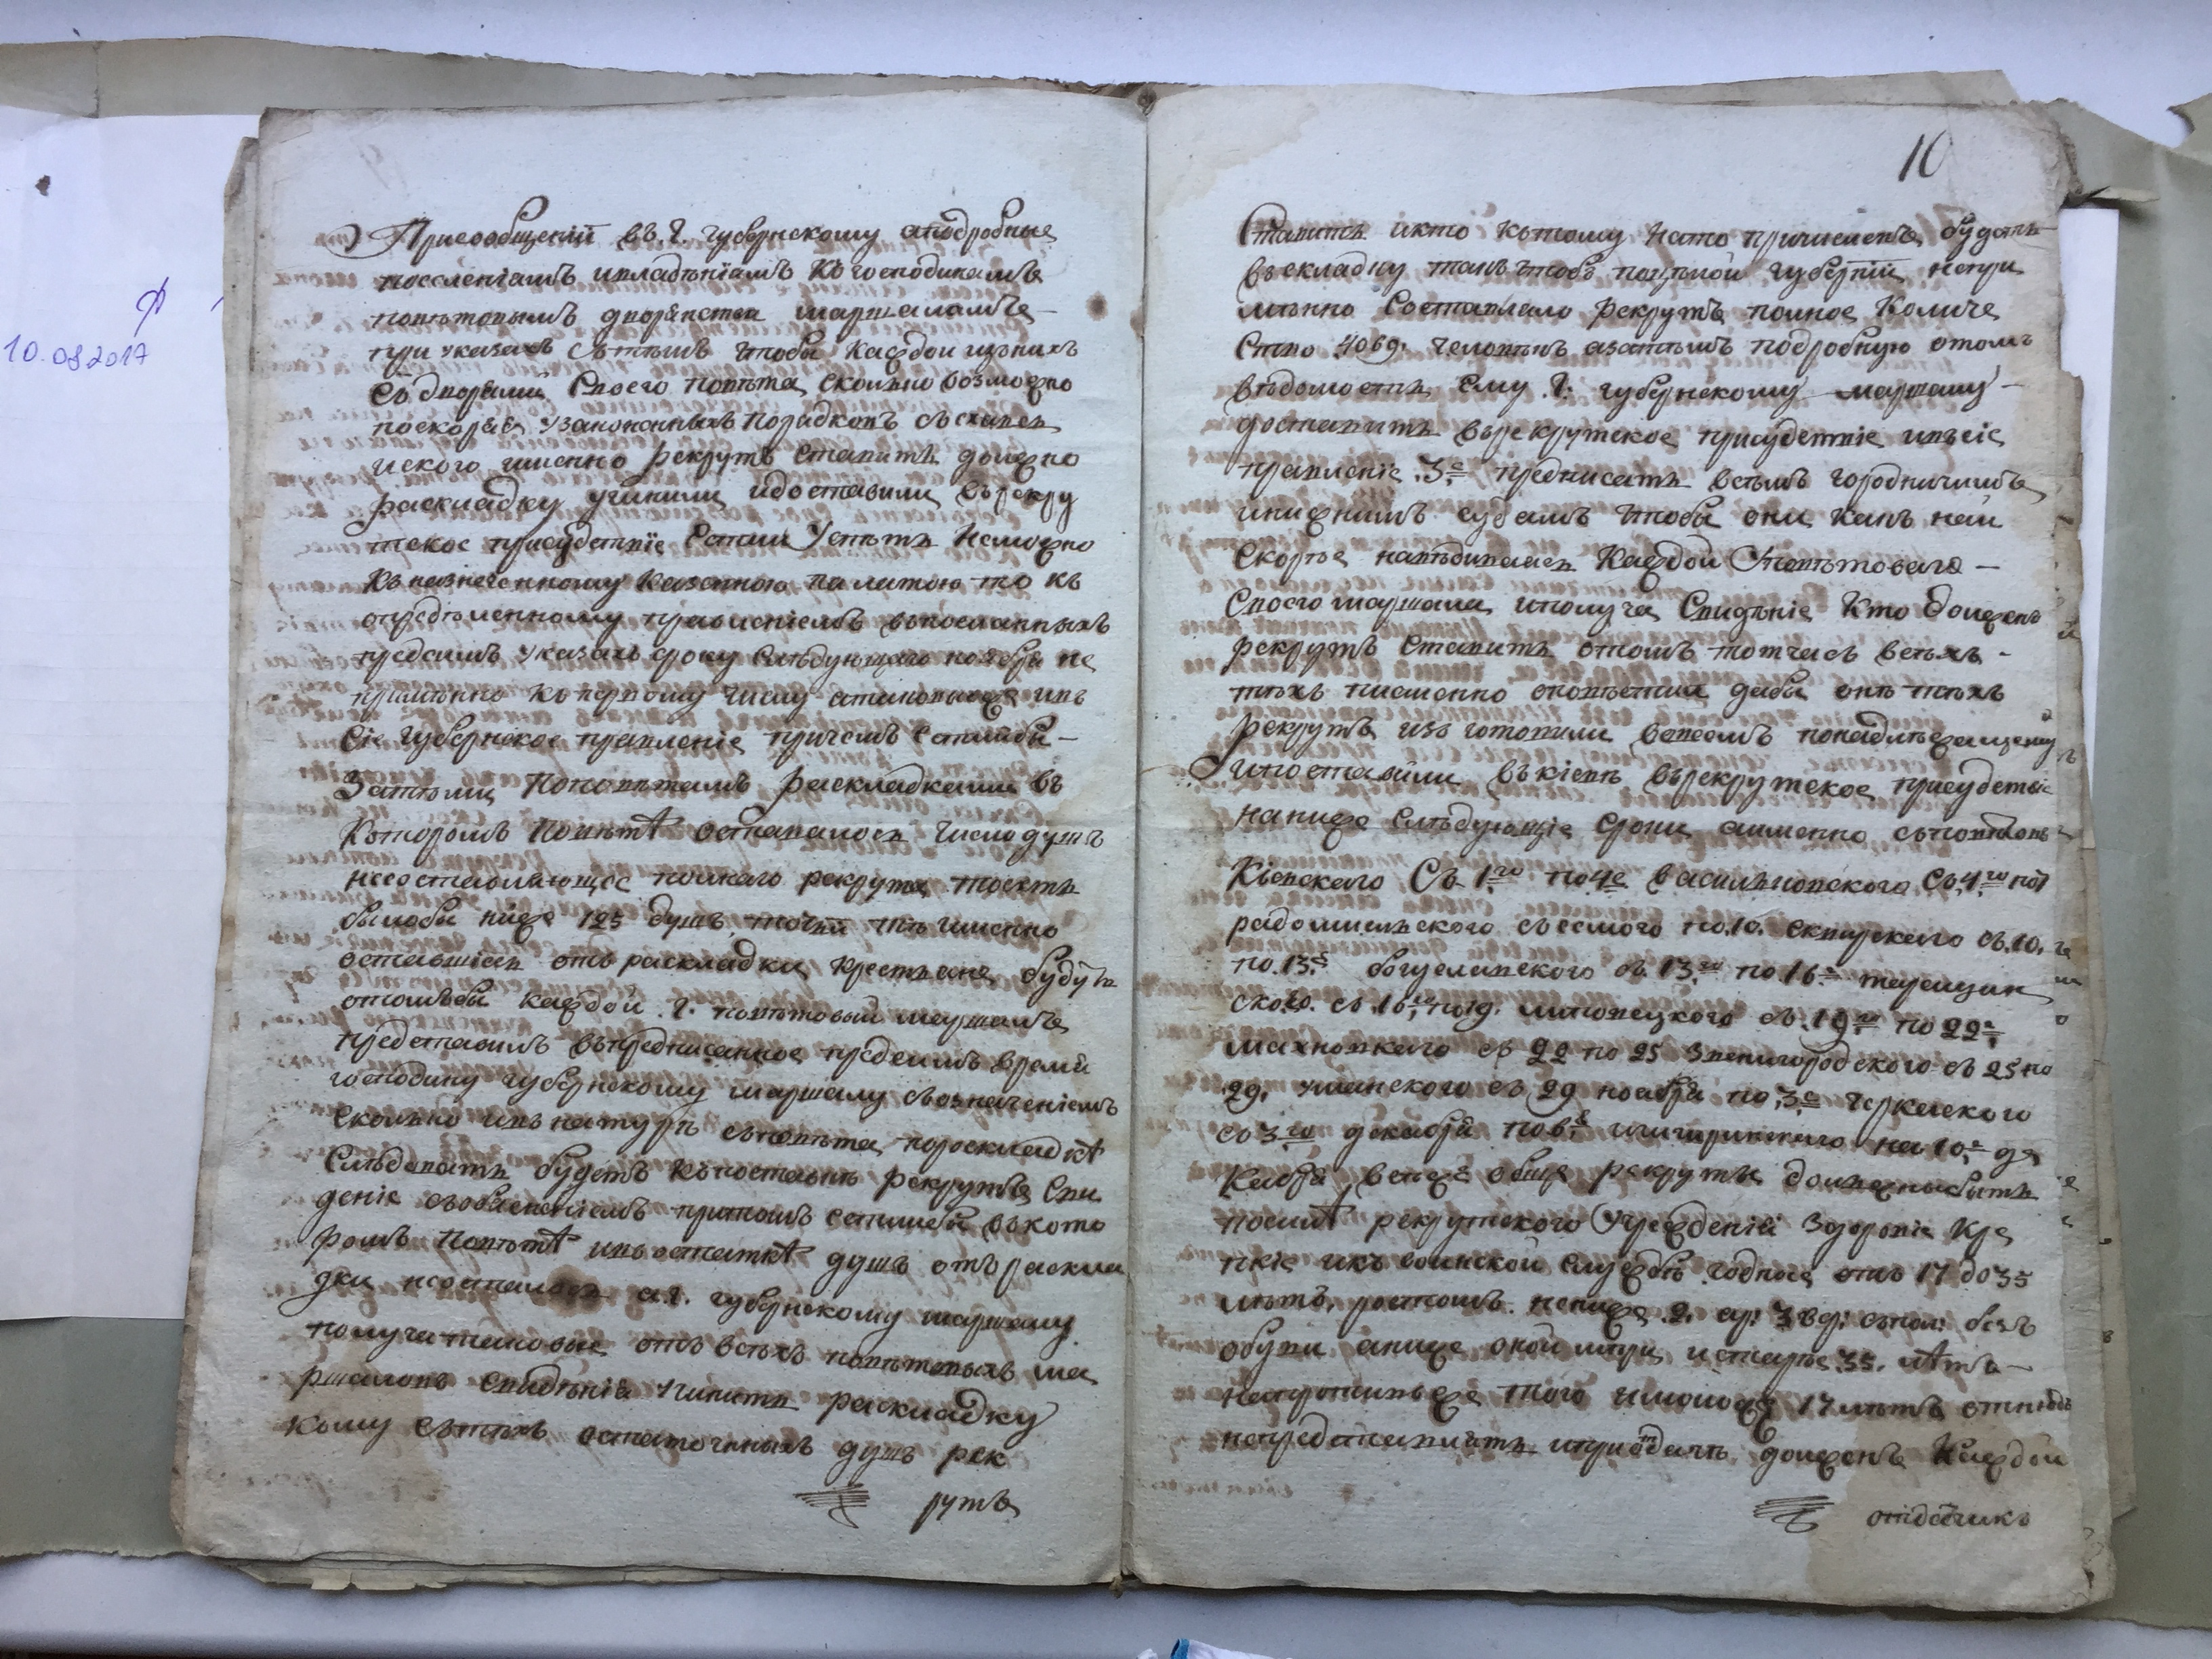 10
10.08.2017
Присообщенiи въ. г. губернскому аподробные
поселенiямъ ивладѣнiямъ къ господинамъ
повѣтовымъ дворянства маршаламъ
при указахъ сътѣмъ чтобы каждои изънихъ
съдворями своего повѣта сколько возможно
поскорѣя узаконенныхъ порядковъ
иского именно рекрутъ ставить должно
раскладку учинили идоставили върекру
тское присудствiе Естли Успѣть неможно
къ назначенному казенною палатою то къ
опредѣленному правленiемъ въпосланныхъ
предсимъ указахъ сроку слѣдующаго ноября не
премѣнно ко первому числу атаковыеже ивъ
сiе губернское правленiе причемъ Естлибы
Затѣми поповѣтамъ раскладками въ
которомъ повѣтѣ оставалось число душъ
несоставляющее полнаго рекрута тоесть
былобы ниже 125 душъ, чiи именно
оставшiеся отъ раскладки крестьяне будутъ
отомъбы каждой г. повѣтовый маршалъ
представилъ въпредписанное предсимъ время
господину губернскому маршалу съозначенiемъ
сколько ивъ натурѣ съповѣта пораскладкѣ
слѣдовать будетъ къпоставкѣ рекрутъ сви
денiе съобясненiемъ притомъ естлибы въкото
ромъ повѣтѣ ивъ остаткѣ душъ отъ раскла
дки неосталось а г. губернскому маршалу
получа таковые отъ всѣхъ повѣтовыхъ ма
ршаловъ свидѣнiя чинить раскладку
кому сътѣхъ остаточныхъ душъ рек
рутъ
Ставить икто кътому нато причисленъ будетъ
въ складку такъ чтобъ поцѣлой губернiи непре
мѣнно Составляло рекрутъ полное Количе
ство 4069. человѣкъ азатѣмъ подробную отомъ
вѣдомость Ему г: губернскому маршалу
доставить върекрутское присудствiе ивъсiе
правленiе .3е предписать всѣмъ городничимъ
инижнимъ судамъ чтобы они какъ наи
скорѣе навѣдывались каждой Уповѣтоваго
своего маршала иполуча Свидѣнiе кто долженъ
рекрутъ ставить отомъ тотчасъ всѣхъ
тѣхъ писменно оповѣстили дабы онѣ тѣхъ
рекрутъ изъготовили всѣемъ понадлѣжащему
ипоставили въкiевъ върекрутское присудствiе
нанижеслѣдующiе сроки аименно съповѣтовъ
Кiевскаго Съ 1го по4е васильковского съ.4.го по7
радомисльского съсемого по.10. сквирского съ.10.
по.13.е богуславского съ 13.го по 16.е таращан
ского. съ .16.го по19. липовецкого съ.19.го по 22е
махновкаго съ 22 по 25 Звенигородского съ 25 по
29. уманского съ 29 ноября по 3е черкаского
съ 3го декабря по6.е чигиринскаго на 10.е де
кабря всѣже обще рекруты должныбыть
посилѣ рекрутского Учрежденiй здоровiе кре
пкiе икъ воинской службѣ годные отъ 17 до35
лѣтъ, ростомъ. нениже .2. ар: 3 вер: съпол: безъ
обуви аниже оной мѣры истаръе .35. лѣтъ
напротивъже того имоложе 17 лѣтъ отнюдь
непредставлять иприотдачѣ долженъ каждои
отдатчикъ